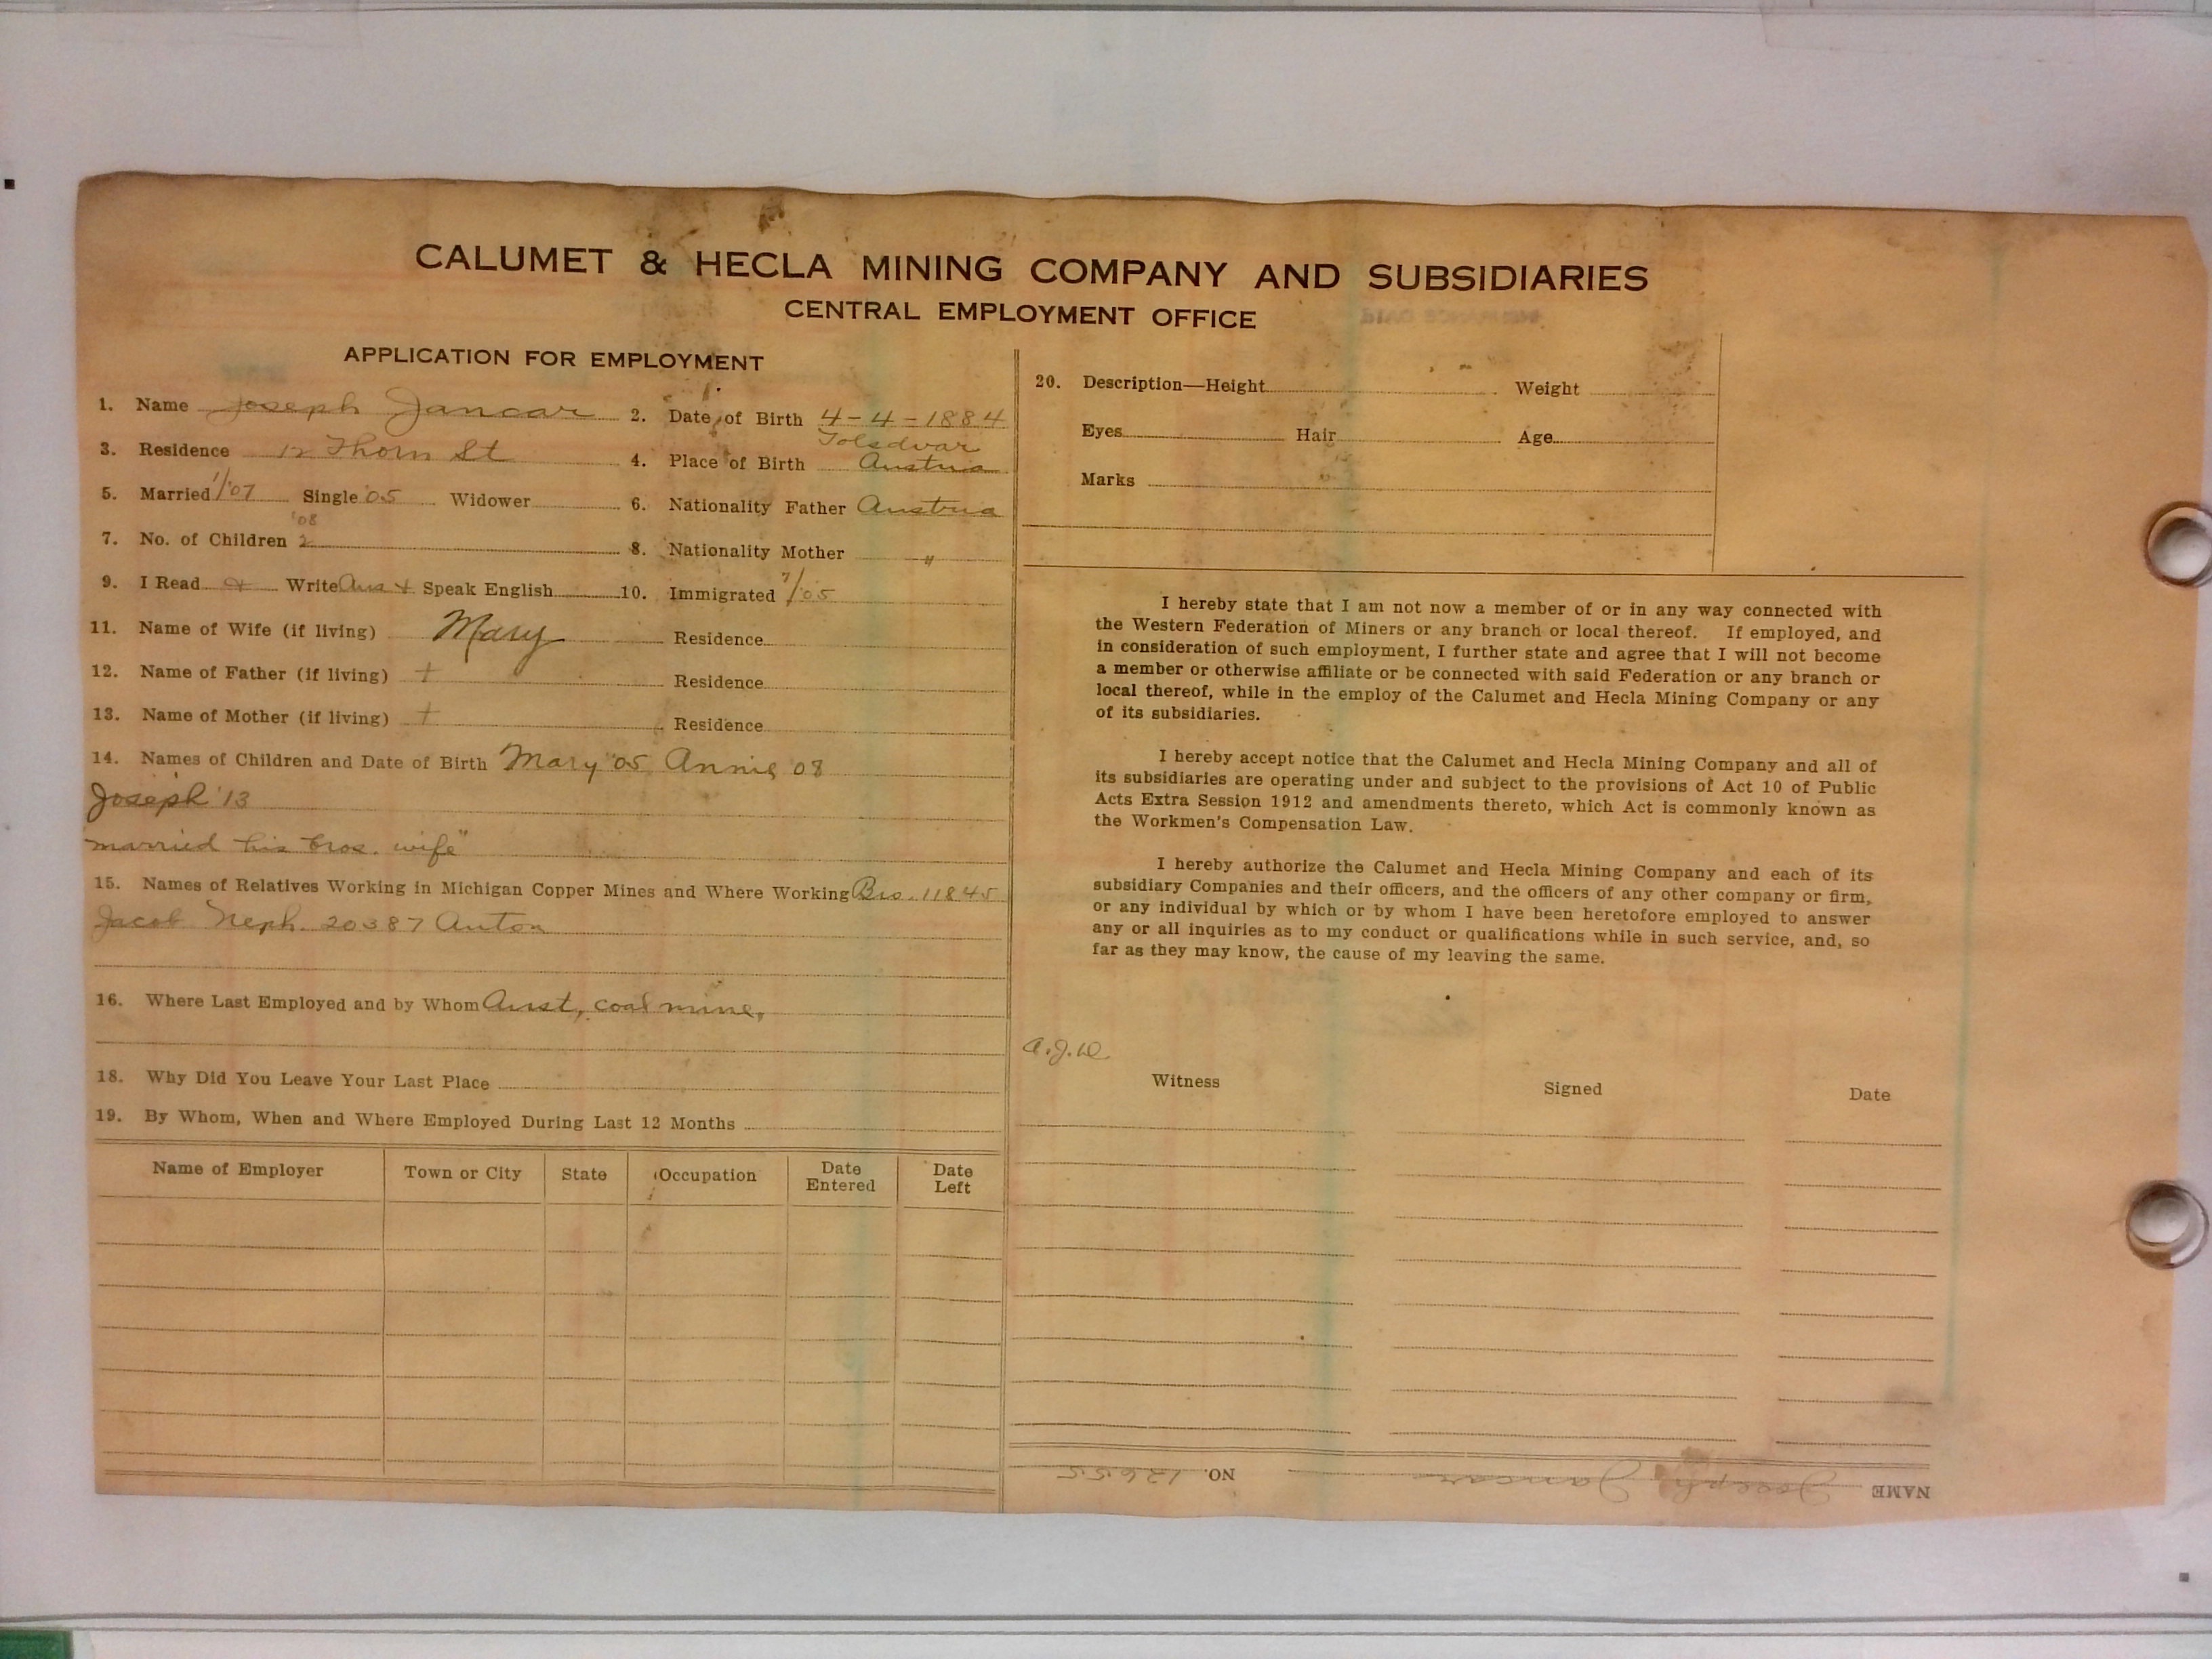 CALUMET & HECLA MINING COMPANY AND SUBSIDIARIES
CENTRAL EMPLOYMENT OFFICE
APPLICATION FOR EMPLOYMENT
1. Name Joseph Jancar 2. Date of Birth 4-4-1884
3. Residence 12 Thorn St 4. Place of Birth Tolsdvar Austria
5. Married 1/'07 Single '05 Widower 6. Nationality Father Austria
'08
7. No. of Children 2 8. Nationality Mother "
9. I Read + Write Aus + Speak English 10. Immigrated 7/'05
11. Name of Wife (if living) Mary Residence
12. Name of Father (if living) + Residence
13. Name of Mother (if living) + Residence
14. Names of Children and Date of Birth Mary '05 Annie 08
Joseph '13
"married his bros. wife"
15. Names of Relatives Working in Michigan Copper Mines and Where Working Bro. 11845
Jacob Neph. 20387 Anton
16. Where Last Employed and by Whom Aust, coal mine,
18. Why Did You Leave Your Last Place
19. By Whom, When and Where Employed During Last 12 Months
Name of Employer Town or City State Occupation Date Entered Date Left
20. Description—Height Weight
Eyes Hair Age
Marks
I hereby state that I am not now a member of or in any way connected with
the Western Federation of Miners or any branch or local thereof. If employed, and
in consideration of such employment, I further state and agree that I will not become
a member or otherwise affiliate or be connected with said Federation or any branch or
local thereof, while in the employ of the Calumet and Hecla Mining Company or any
of its subsidiaries.
I hereby accept notice that the Calumet and Hecla Mining Company and all of
its subsidiaries are operating under and subject to the provisions of Act 10 of Public
Acts Extra Session 1912 and amendments thereto, which Act is commonly known as
the Workmen's Compensation Law.
I hereby authorize the Calumet and Hecla Mining Company and each of its
subsidiary Companies and their officers, and the officers of any other company or firm,
or any individual by which or by whom I have been heretofore employed to answer
any or all inquiries as to my conduct or qualifications while in such service, and, so
far as they may know, the cause of my leaving the same.
Witness Signed Date
NAME Joseph Jancar NO. 12655